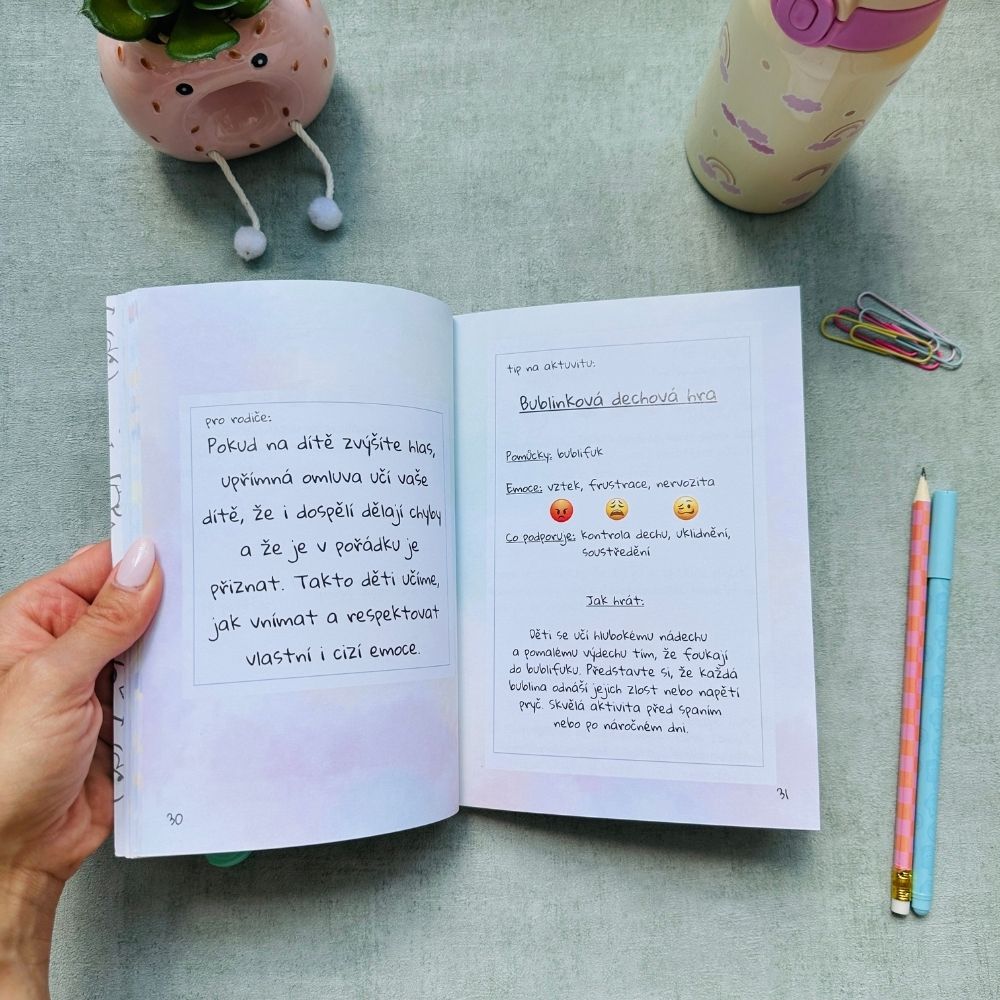 pro rodiče:
Pokud na dítě zvýšíte hlas,
upřímná omluva učí vaše
dítě, že i dospělí dělají chyby
a že je v pořádku je
přiznat. Takto děti učíme,
jak vnímat a respektovat
vlastní i cizí emoce.
30
tip na aktuvitu:
Bublinková dechová hra
Pomůcky: bublifuk
Emoce: vztek, frustrace, nervozita
Co podporuje: kontrola dechu, uklidnění,
soustředění
Jak hrát:
Děti se učí hlubokému nádechu
a pomalému výdechu tím, že foukají
do bublifuku. Představte si, že každá
bublina odnáší jejich zlost nebo napětí
pryč. Skvělá aktivita před spaním
nebo po náročném dni.
31